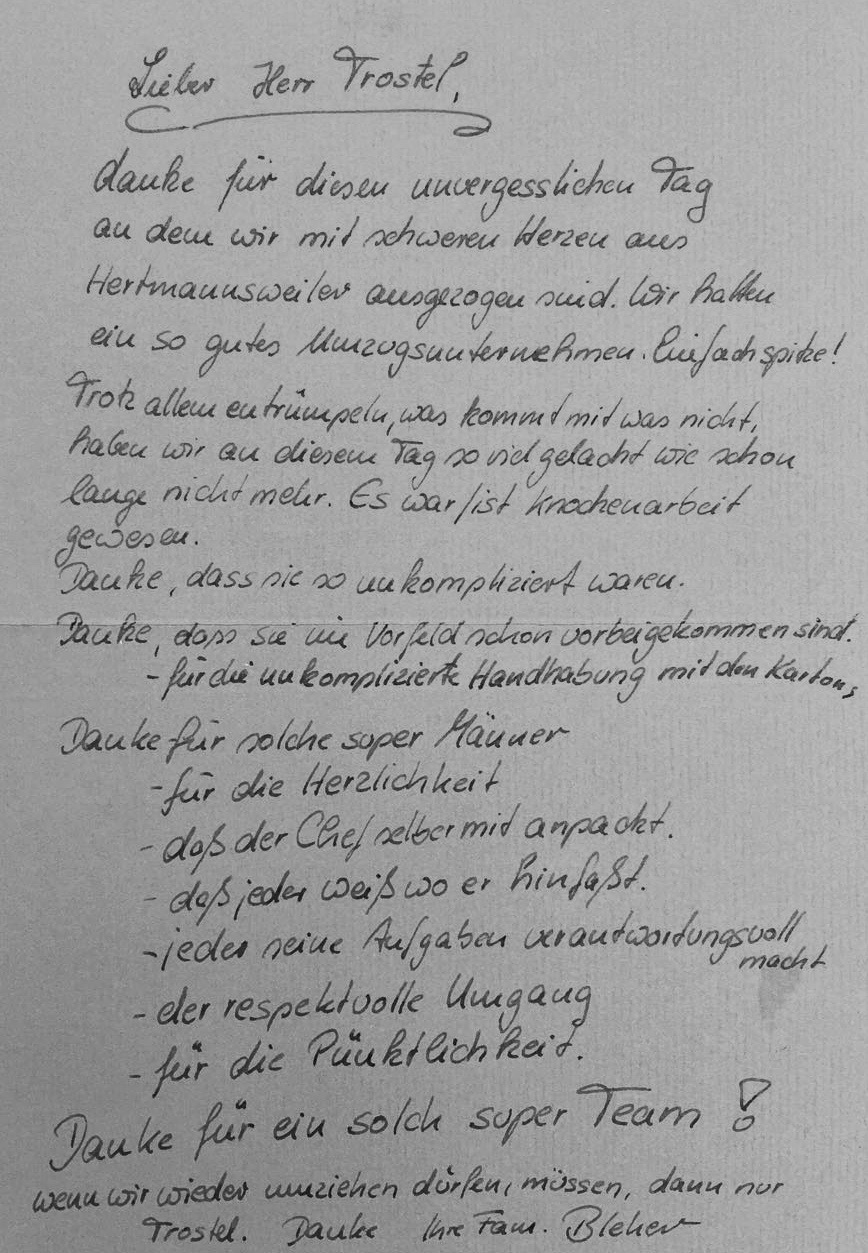 Lieber Herr Trostel,
danke für diesen unvergesslichen Tag
an dem wir mit schweren Herzen aus
Hertmannsweiler ausgezogen sind. Wir hatten
ein so gutes Umzugsunternehmen. Einfach spitze!
Trotz allem entrümpeln, was kommt mit was nicht,
haben wir an diesem Tag so viel gelacht wie schon
lange nicht mehr. Es war/ist Knochenarbeit
gewesen.
Danke, dass sie so unkompliziert waren.
Danke, dass sie im Vorfeld schon vorbeigekommen sind.
- für die unkomplizierte Handhabung mit den Kartons
Danke für solche super Männer
- für die Herzlichkeit
- daß der Chef selber mit anpackt.
- daß jeder weiß wo er hinfaßt.
- jeder seine Aufgaben verantwortungsvoll
macht
- der respektvolle Umgang
- für die Pünktlichkeit.
Danke für ein solch super Team!
wenn wir wieder umziehen dürfen, müssen, dann nur
Trostel. Danke Ihre Fam. Bleher